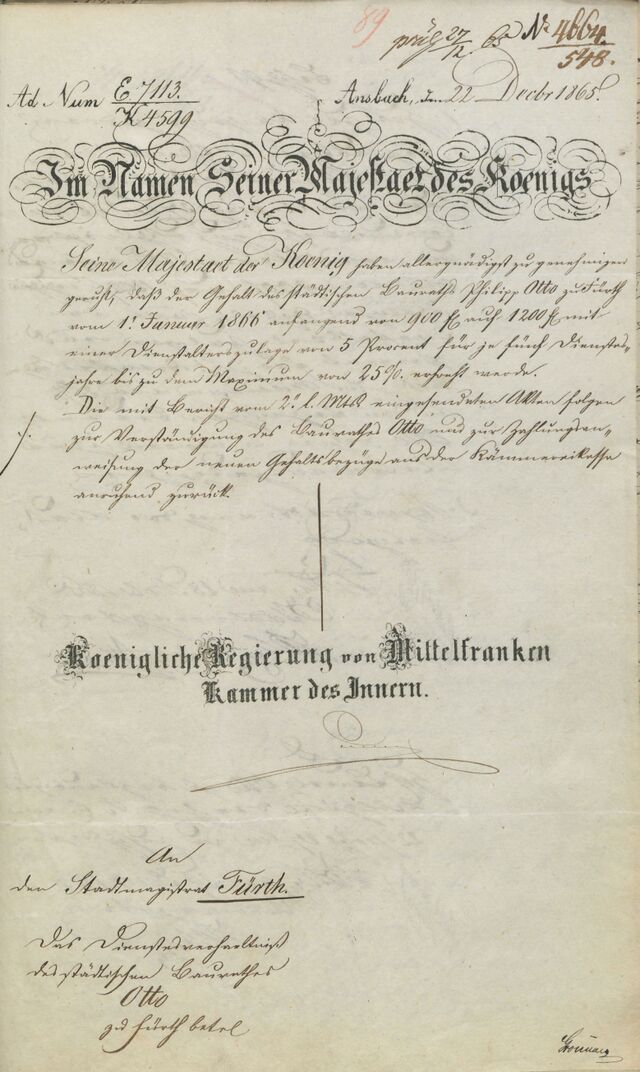 89
präs 27/12 65 Nr. 4664.
548.
Ad Num E 7113.
K 4599
Ansbach, den 22 Decbr 1865.
Im Namen Seiner Majestaet des Koenigs
Seine Majestaet der Koenig haben allergnädigst zu genehmigen
geruht, daß der Gehalt des städtischen Bauraths Philipp Otto zu Fürth
vom 1t Januar 1866 anfangend von 900 f auf 1200 f mit
einer Dienstalterszulage von 5 Procent für je fünf Dienstes-
jahre bis zu dem Maximum von 25%. erhöht werde.
Die mit Bericht vom 2t l. Mts eingesendeten Akten folgen
zur Verständigung des Baurathes Otto und zur Zahlungsan-
weisung der neuen Gehaltsbezüge aus der Kämmereikasse
anruhend zurück.
Koenigliche Regierung von Mittelfranken
Kammer des Innern.
An
den Stadtmagistrat Fürth.
Das Dienstesverhaeltniß
des städtischen Baurathes
Otto
zu Fürth betel